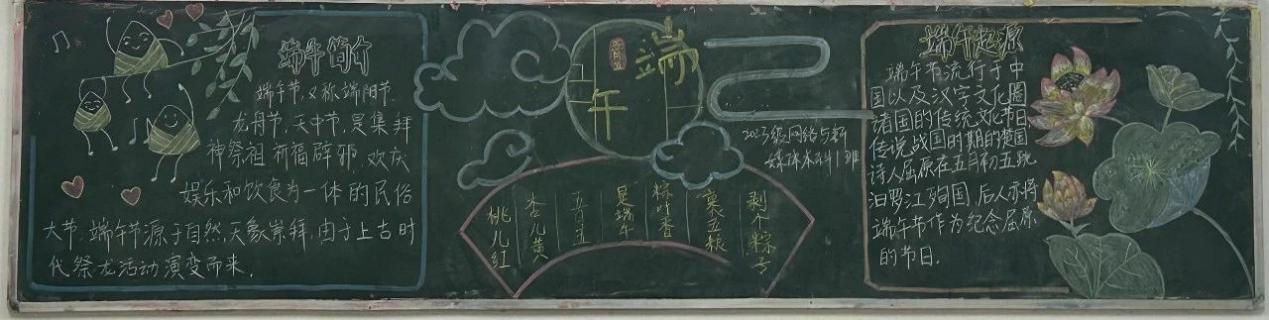 端午简介
端午节,又称端阳节、
龙舟节,天中节,是集拜
神祭祖祈福辟邪、欢庆
娱乐和饮食为一体的民俗
大节,端午节源于自然天象崇拜,由于上古时
代祭龙活动演变而来.
端
午
2023级网络与新
媒体本科1班
桃儿红
杏儿黄
五月五
是端午
粽叶香
裹五粮
剥个粽子
端午起源
端午节流行于中
国以及汉字文化圈
诸国的传统文化节日
传说战国时期的楚国
诗人屈原在五月初五跳
汨罗江殉国,后人亦将
端午节作为纪念屈原
的节日.